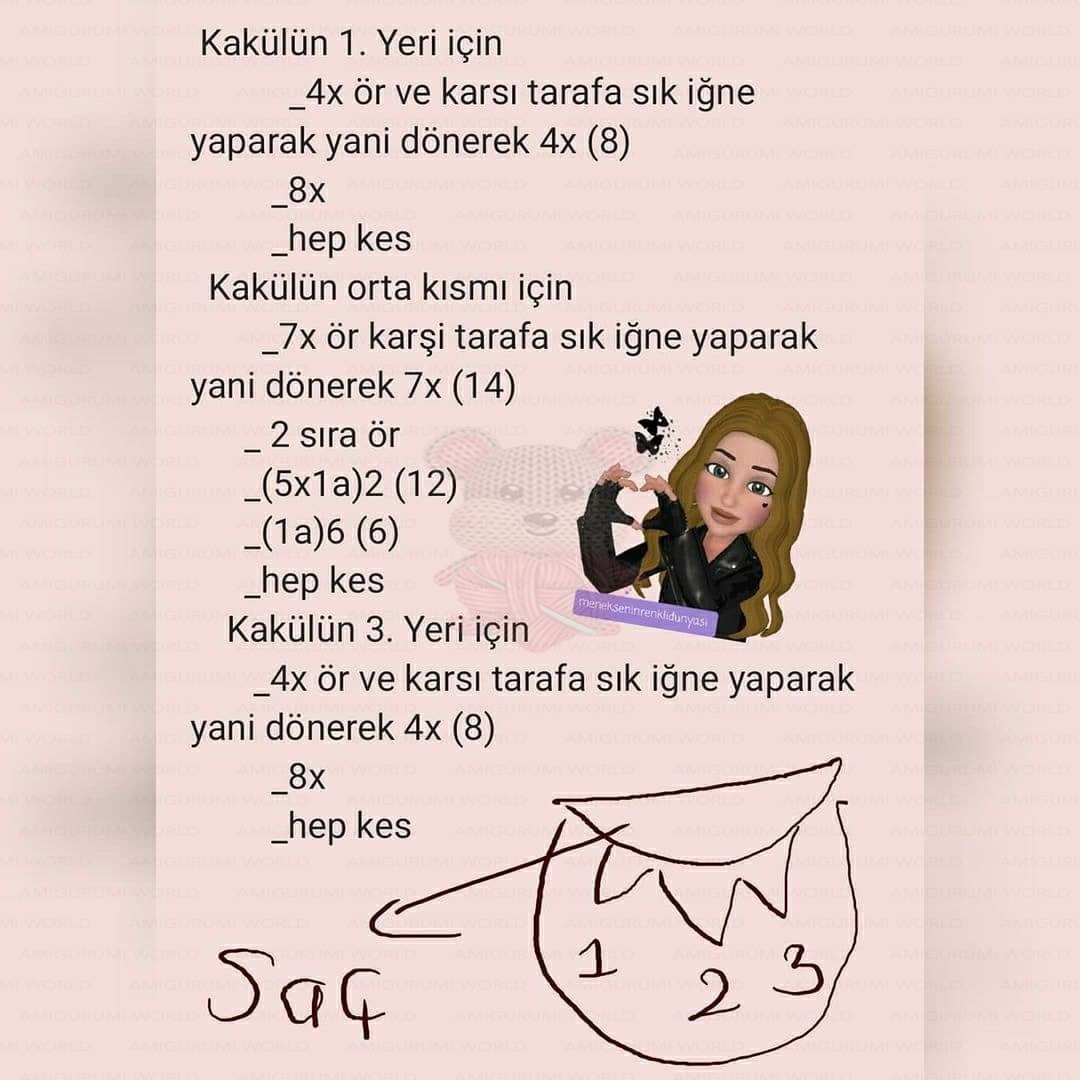 Kakülün 1. Yeri için
_4x ör ve karsı tarafa sık iğne
yaparak yani dönerek 4x (8)
_8x
_hep kes
Kakülün orta kısmı için
_7x ör karşi tarafa sık iğne yaparak
yani dönerek 7x (14)
_ 2 sıra ör
_(5x1a)2 (12)
_(1a)6 (6)
_hep kes
menekseninrenklidunyasi
Kakülün 3. Yeri için
_4x ör ve karsı tarafa sık iğne yaparak
yani dönerek 4x (8)
_8x
_hep kes
1 2 3
Saç
AMIGURUMI WORLD